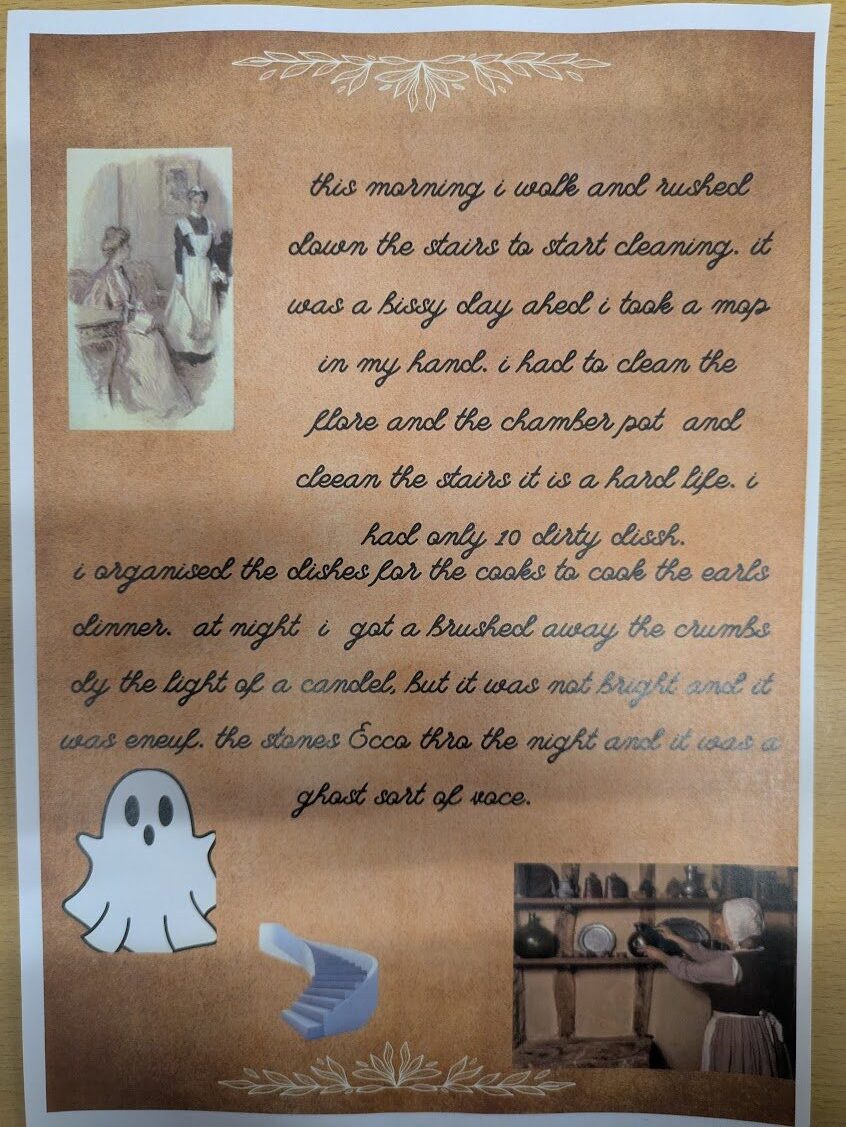 this morning i wolk and rushed
down the stairs to start cleaning. it
was a bissy day ahed i took a mop
in my hand. i had to clean the
flore and the chamber pot and
cleean the stairs it is a hard life. i
had only 10 dirty dissh.
i organised the dishes for the cooks to cook the earls
dinner. at night i got a brushed away the crumbs
dy the light of a candel, but it was not bright and it
was eneuf. the stones Ecco thro the night and it was a
ghost sort of voce.